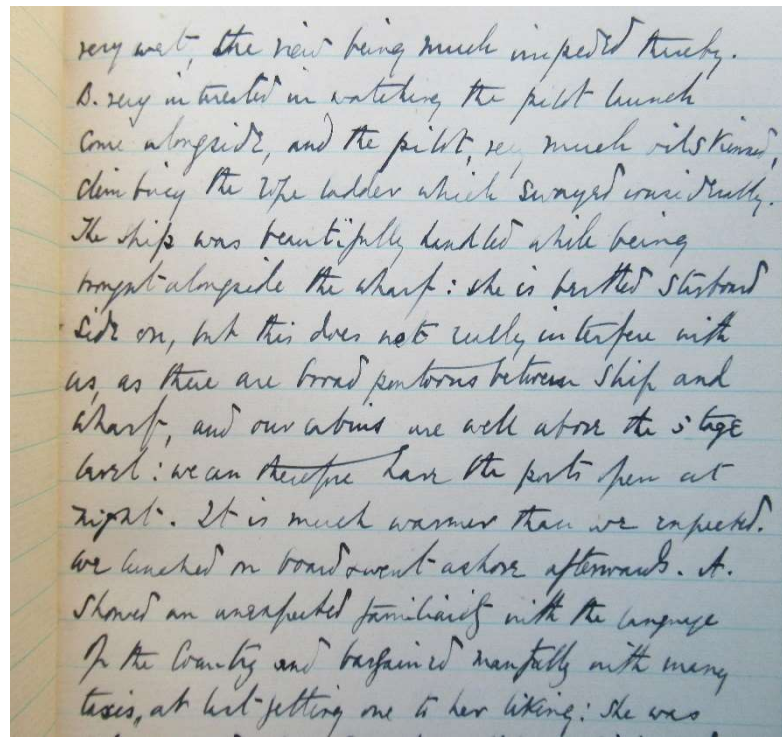 very wet, the view being much impeded thereby.
B. very interested in watching the pilot launch
come alongside, and the pilot, very much oilskinned,
climbing the rope ladder which swayed considerably.
The ship was beautifully handled while being
brought alongside the wharf: she is berthed starboard
side on, but this does not really interfere with
us, as there are broad pontoons between ship and
wharf, and our cabins are well above the stage
level: we can therefore have the ports open at
night. It is much warmer than we expected.
We lunched on board & went ashore afterwards. A.
showed an unexpected familiarity with the language
of the Country and bargained manfully with many
taxis, at last getting one to her liking: she was